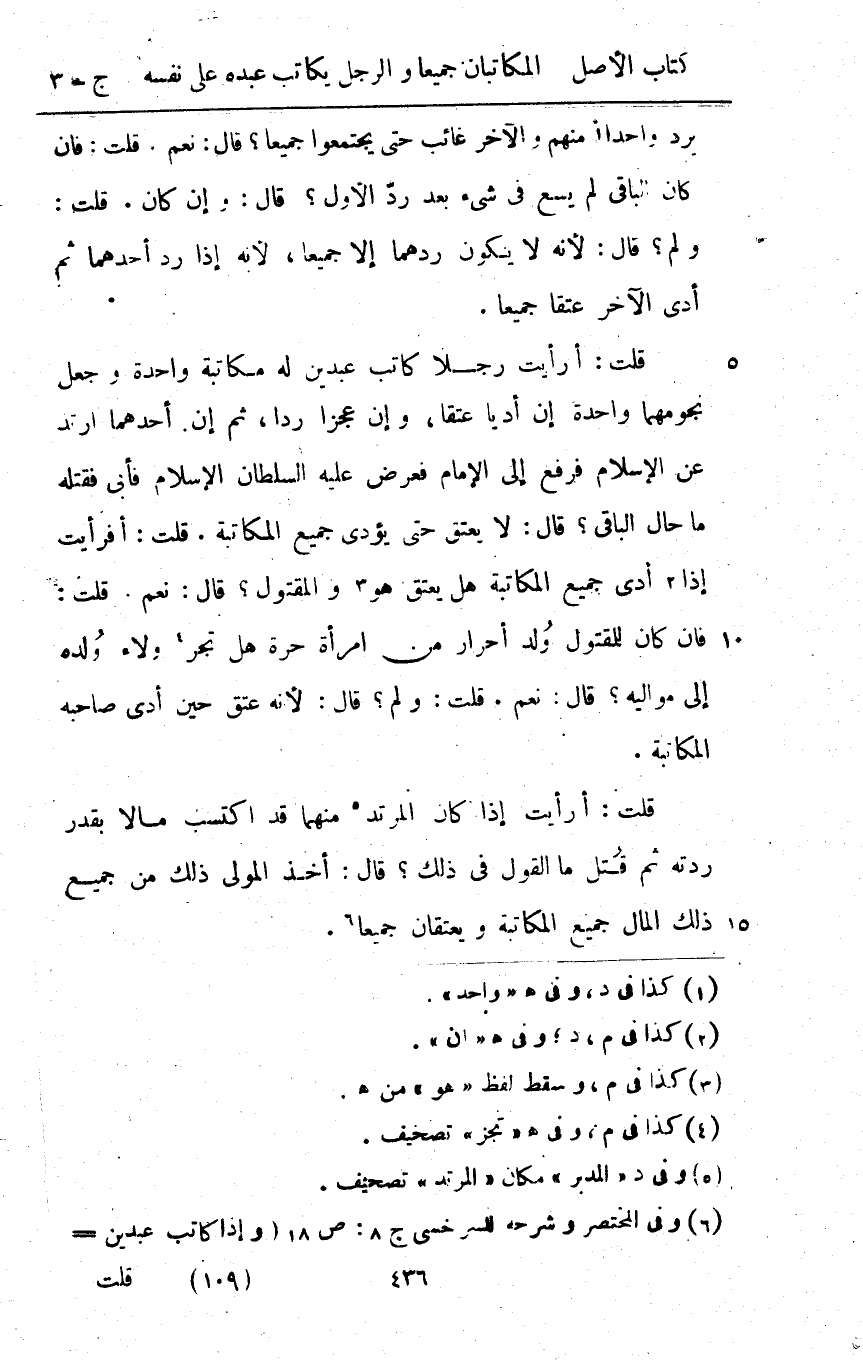 كتاب الأصل المكاتبان جميعا و الرجل يكاتب عبده على نفسه ج - ٣
يرد واحدا١ منهم و الآخر غائب حتى يجتمعوا جميعا ؟ قال : نعم . قلت : فان
كان الباقى لم يسع فى شىء بعد ردّ الأول ؟ قال : و إن كان . قلت :
و لم ؟ قال : لأنه لا يكون ردهما إلا جميعا ، لأنه إذا رد أحدهما ثم
أدى الآخر عتقا جميعا .
٥ قلت : أرأيت رجلا كاتب عبدين له مكاتبة واحدة و جعل
نجومهما واحدة إن أديا عتقا ، و إن عجزا ردا ، ثم إن أحدهما ارتد
عن الإسلام فرفع إلى الإمام فعرض عليه السلطان الإسلام فأبى فقتله
ما حال الباقى ؟ قال : لا يعتق حتى يؤدى جميع المكاتبة . قلت : أفرأيت
إذا٢ أدى جميع المكاتبة هل يعتق هو٣ و المقتول ؟ قال : نعم . قلت :
١٠ فان كان للمقتول وُلد أحرار من امرأة حرة هل تجر٤ ولاء وُلده
إلى مواليه ؟ قال : نعم . قلت : و لم ؟ قال : لأنه عتق حين أدى صاحبه
المكاتبة .
قلت : أرأيت إذا كان المرتد٥ منهما قد اكتسب مالا بقدر
ردته ثم قُتل ما القول فى ذلك ؟ قال : أخذ المولى ذلك من جميع
١٥ ذلك المال جميع المكاتبة و يعتقان جميعا٦ .
(١) كذا فى د ، و فى ه « واحد » .
(٢) كذا فى م ، د ؛ و فى ه « ان » .
(٣) كذا فى م ، و سقط لفظ « هو » من ه .
(٤) كذا فى م ، و فى ه « تجز » تصحيف .
(٥) و فى د « المدبر » مكان « المرتد » تصحيف .
(٦) و فى المختصر و شرحه للسرخسى ج ٨ : ص ١٨ ( و إذا كاتب عبدين =
٤٣٦ (١٠٩) قلت